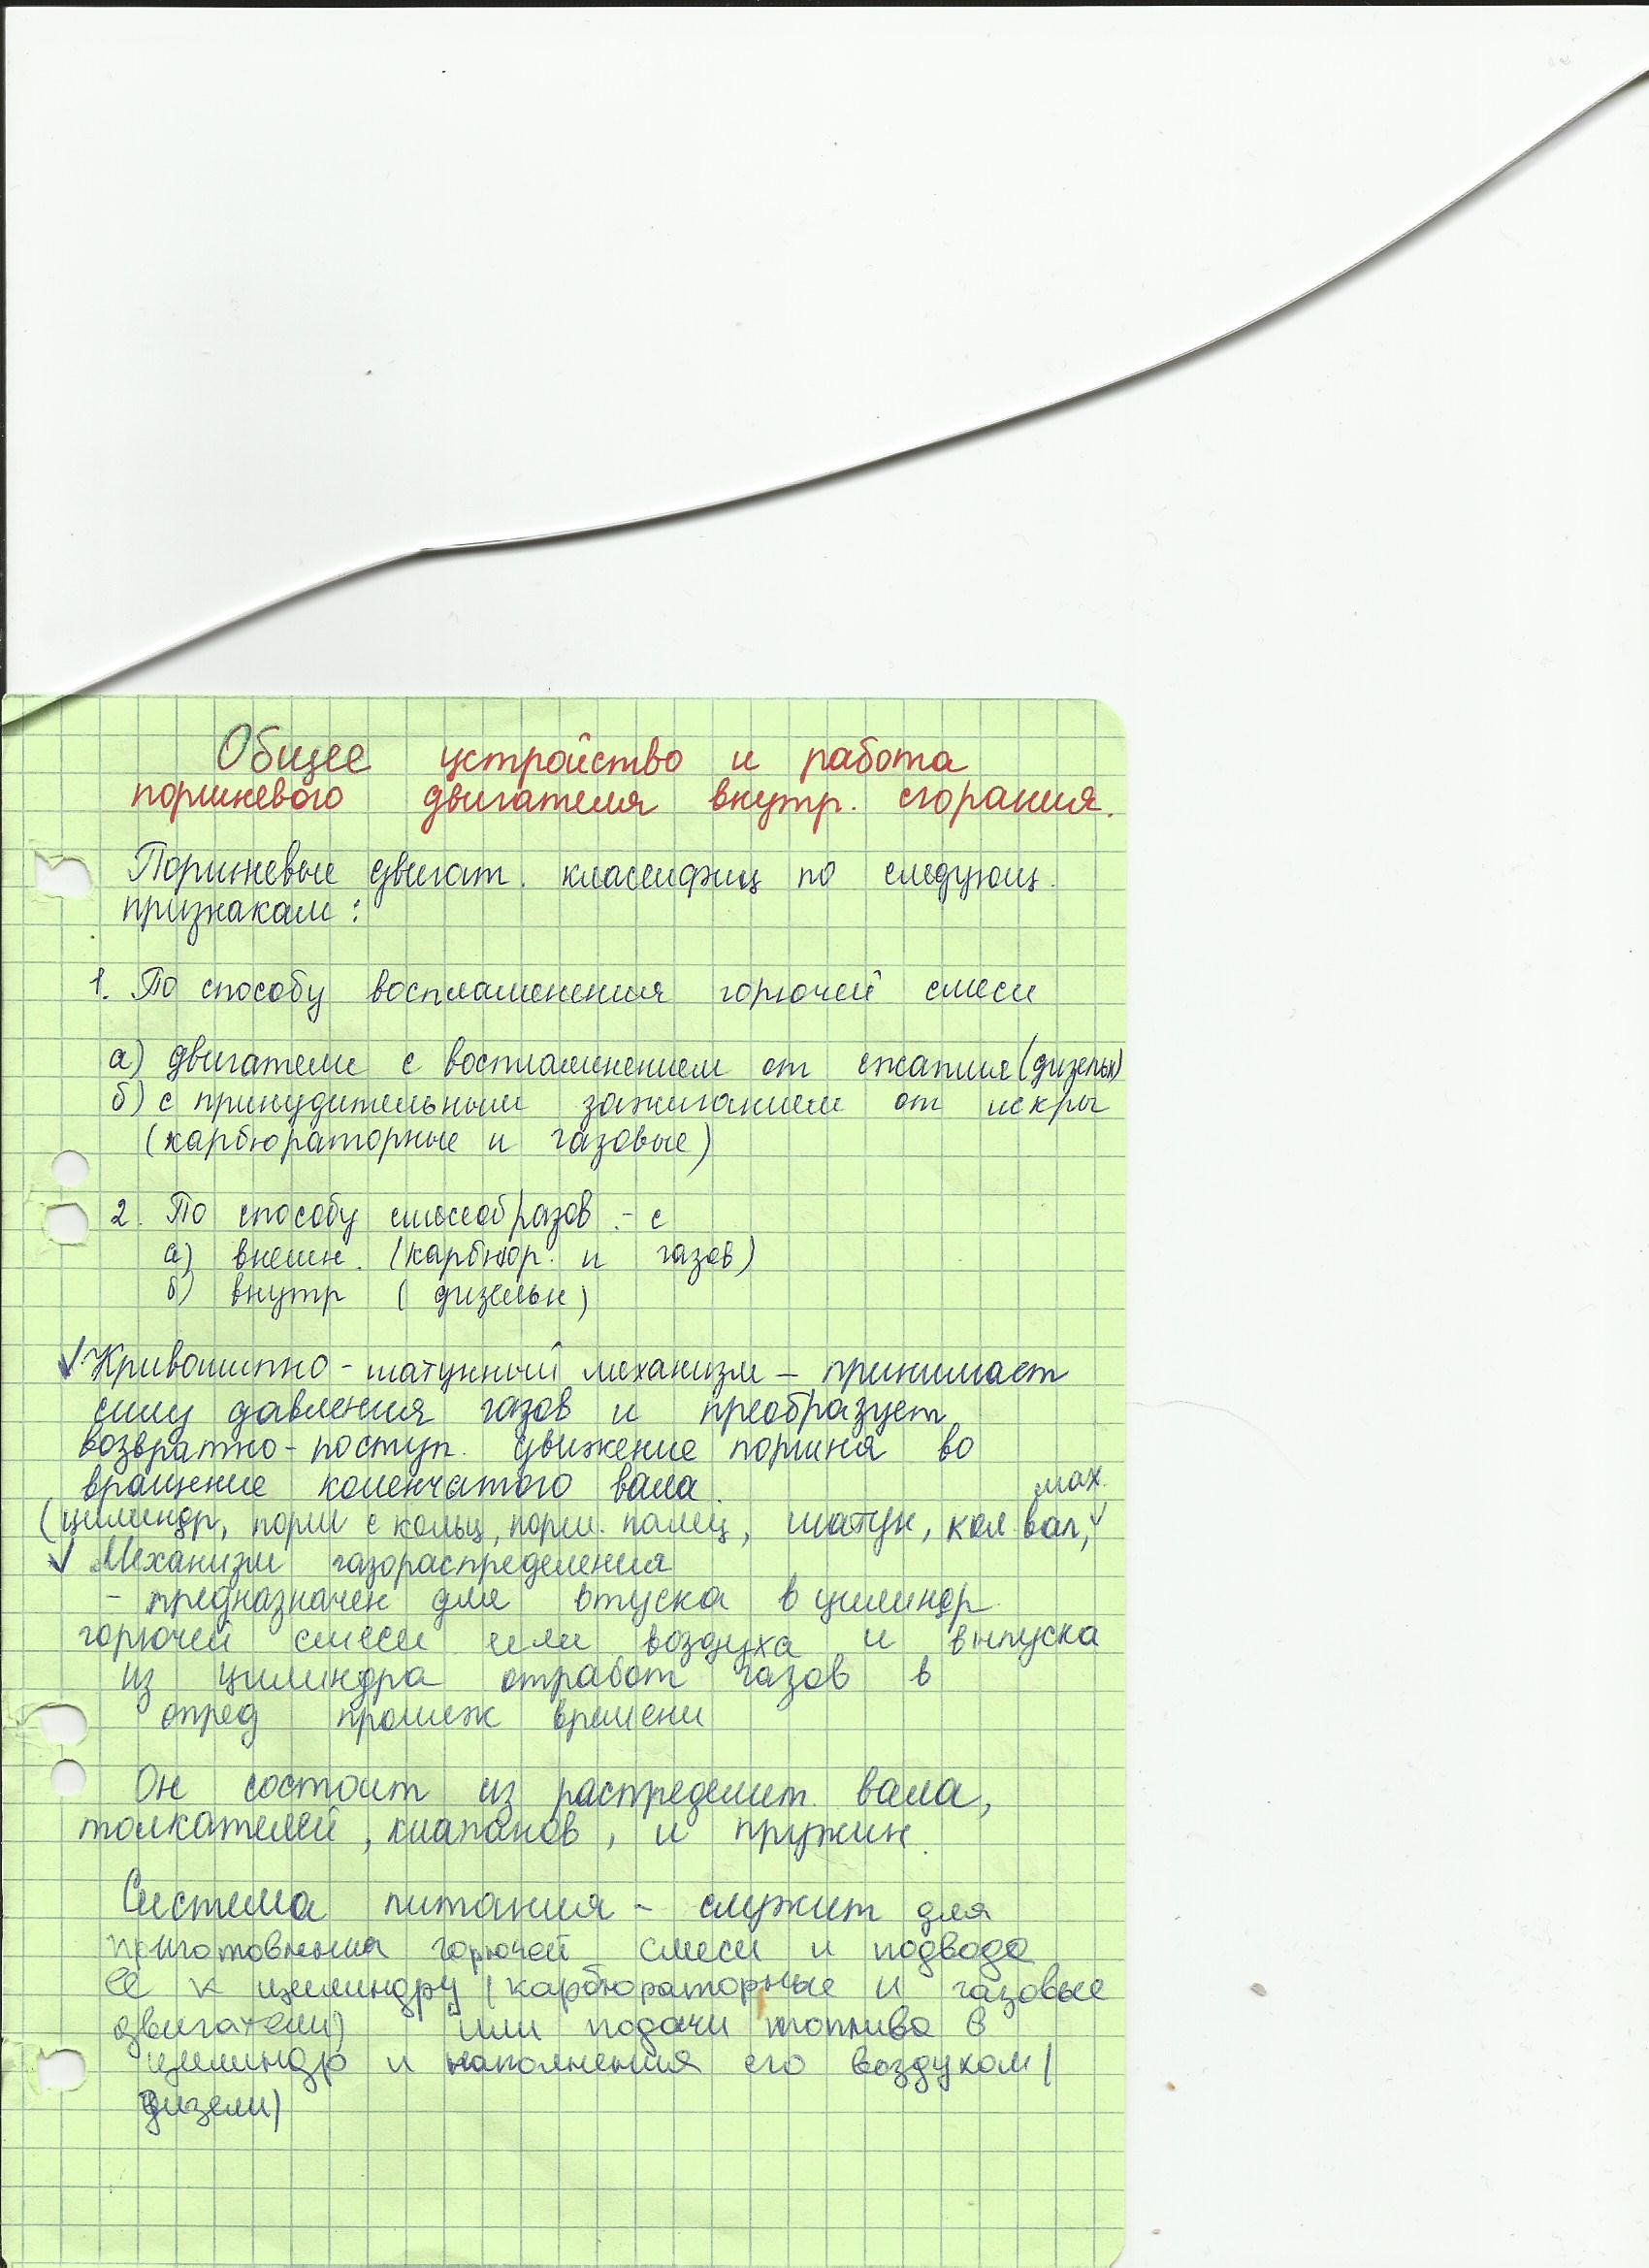 Общее устройство и работа
поршневого двигателя внутр. сгорания.
Поршневые двигат. классифиц по следующ.
признакам:
1. По способу воспламенения горючей смеси
а) двигатели с воспламенением от сжатия (дизельн)
б) с принудительным зажиганием от искры
(карбюраторные и газовые)
2. По способу смесеобразов. - с
а) внешн. (карбюр. и газов)
б) внутр ( дизельн)
✓ Кривошипно - шатунный механизм - принимает
силу давления газов и преобразует
возвратно - поступ. движение поршня во
вращение коленчатого вала.
мах.
(цилиндр, порш с кольц, порш. палец, шатун, кол вал,✓
✓ Механизм газораспределения
- предназначен для впуска в цилиндр
горючей смеси или воздуха и выпуска
из цилиндра отработ газов в
опред промеж времени
Он состоит из распределит. вала,
толкателей, клапанов, и пружин.
Система питания - служит для
приготовления горючей смеси и подвода
её к цилиндру (карбюраторные и газовые
двигатели) или подачи топлива в
цилиндр и наполнения его воздухом (
дизели)